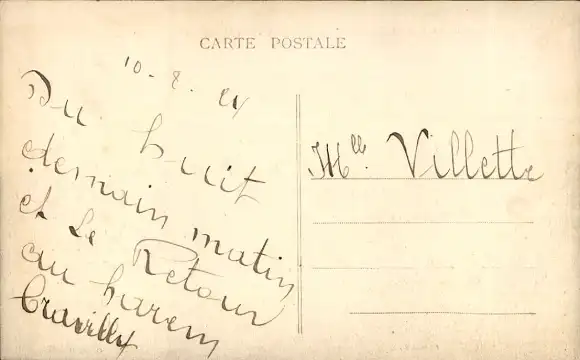 CARTE POSTALE
10. 8. 24
Du huit
demain matin
et Le Retour
au harem
Mlle. Villette